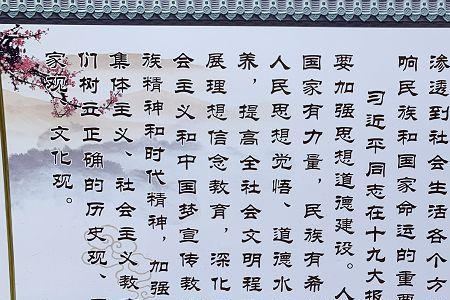 渗透到社会生活各个方
响民族和国家命运的重要
习近平同志在十九大报
要加强思想道德建设。人
国家有力量，民族有希
人民思想觉悟、道德水
养，提高全社会文明程
展理想信念教育，深化
会主义和中国梦宣传教
族精神和时代精神，加强
集体主义、社会主义教
们树立正确的历史观、
家观、文化观。